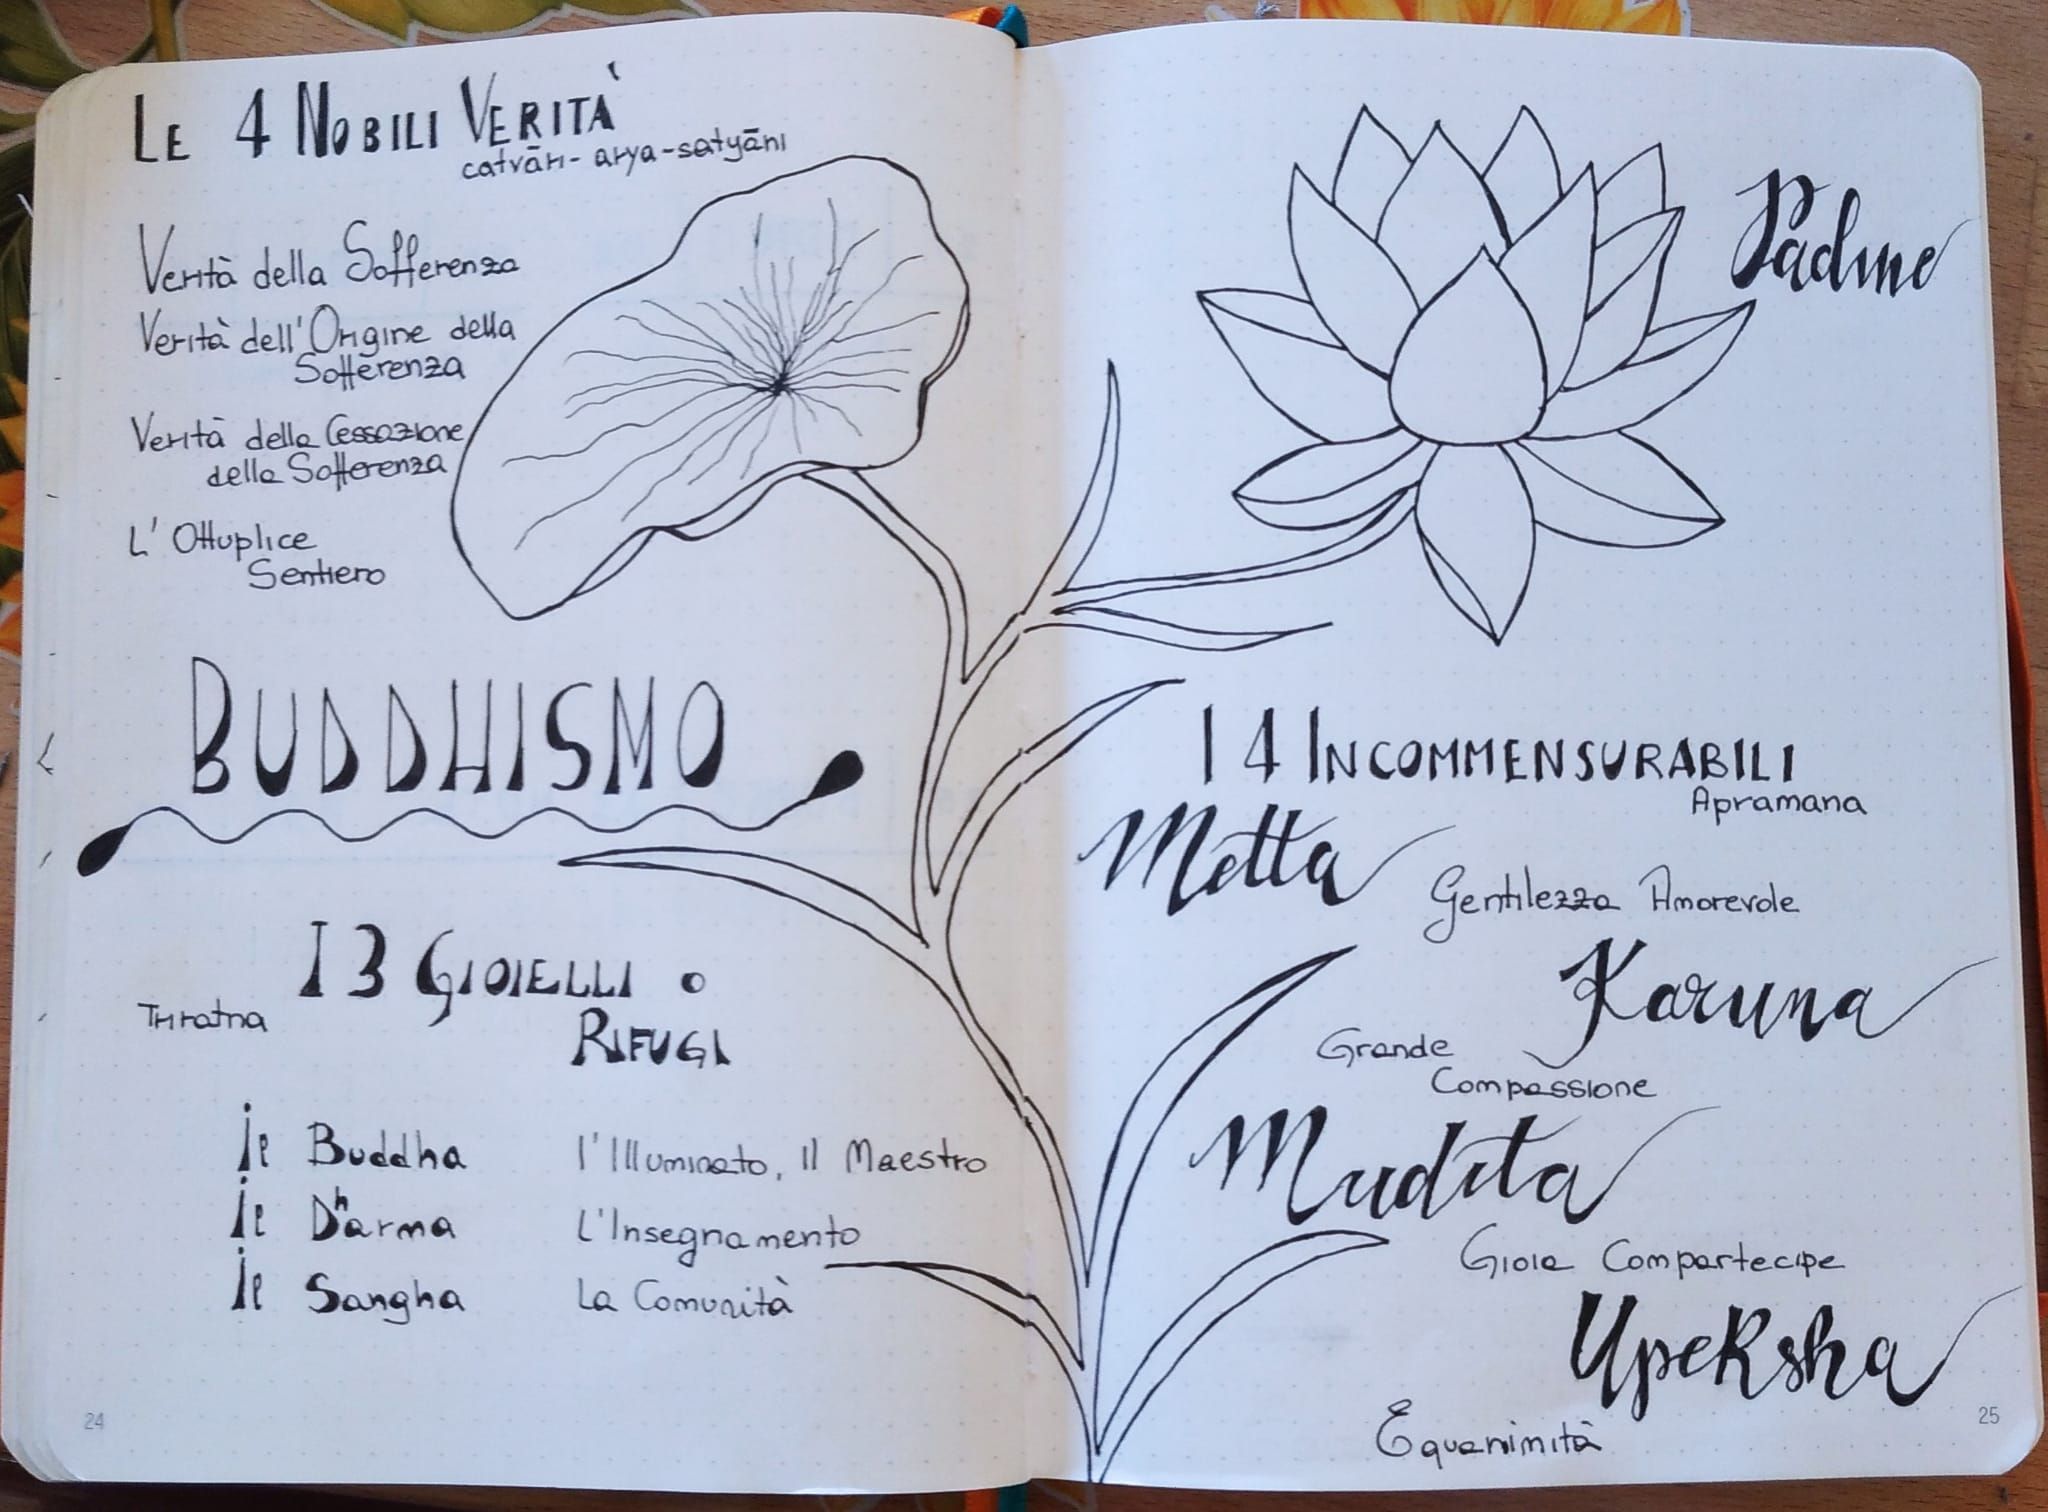 Le 4 Nobili Verità
catvāri-arya-satyāni
Verità della Sofferenza
Verità dell'Origine della
Sofferenza
Verità della Cessazione
della Sofferenza
L'Ottuplice
Sentiero
Buddhismo
I 3 Gioielli o
Triratna
Rifugi
Buddha l'Illuminato, il Maestro
Dharma L'Insegnamento
Sangha La Comunità
24
Padme
I 4 Incommensurabili
Apramana
Metta
Gentilezza Amorevole
Karuna
Grande
Compassione
Mudita
Gioia Compartecipe
Upeksha
Equanimità
25